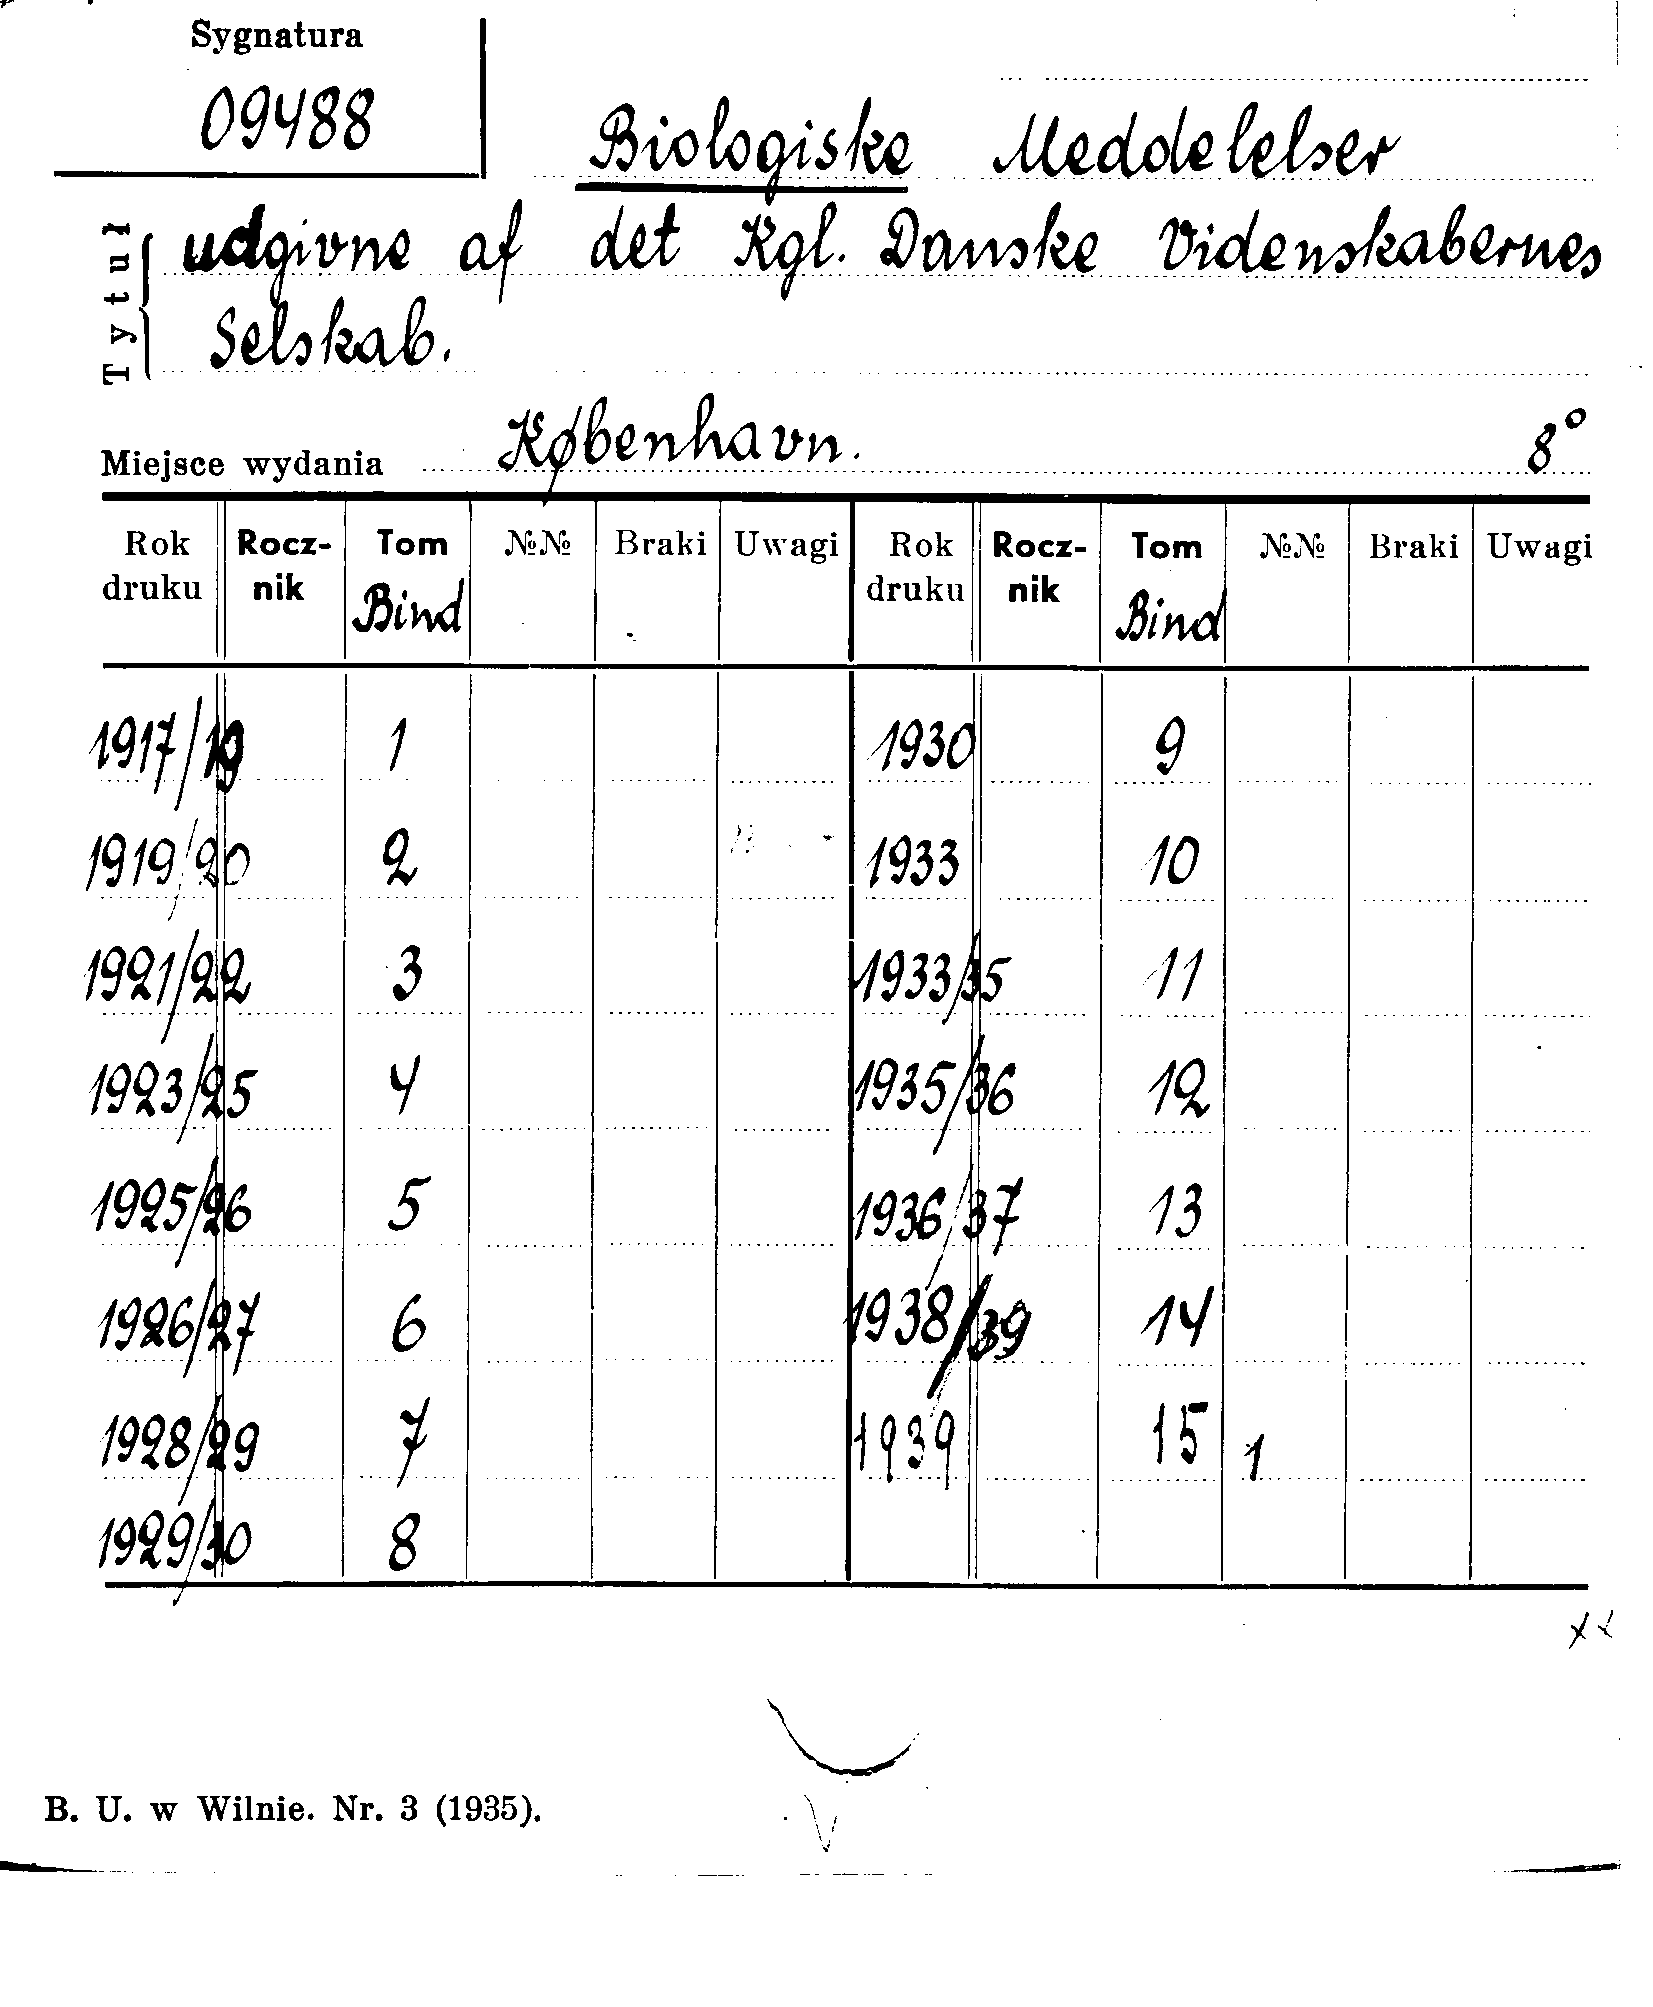 Sygnatura
09488
Biologiske Meddelelser
Tytuł
udgivne af det Kgl. Danske Videnskabernes
Selskab.
Miejsce wydania København. 8°
Rok druku Rocz-nik Tom №№ Braki Uwagi Rok druku Rocz-nik Tom №№ Braki Uwagi
Bind Bind
1917/19 1 1930 9
1919/20 2 1933 10
1921/22 3 1933/35 11
1923/25 4 1935/36 12
1925/26 5 1936/37 13
1926/27 6 1938/39 14
1928/29 7 1939 15 1
1929/30 8
xx
B. U. w Wilnie. Nr. 3 (1935).
V